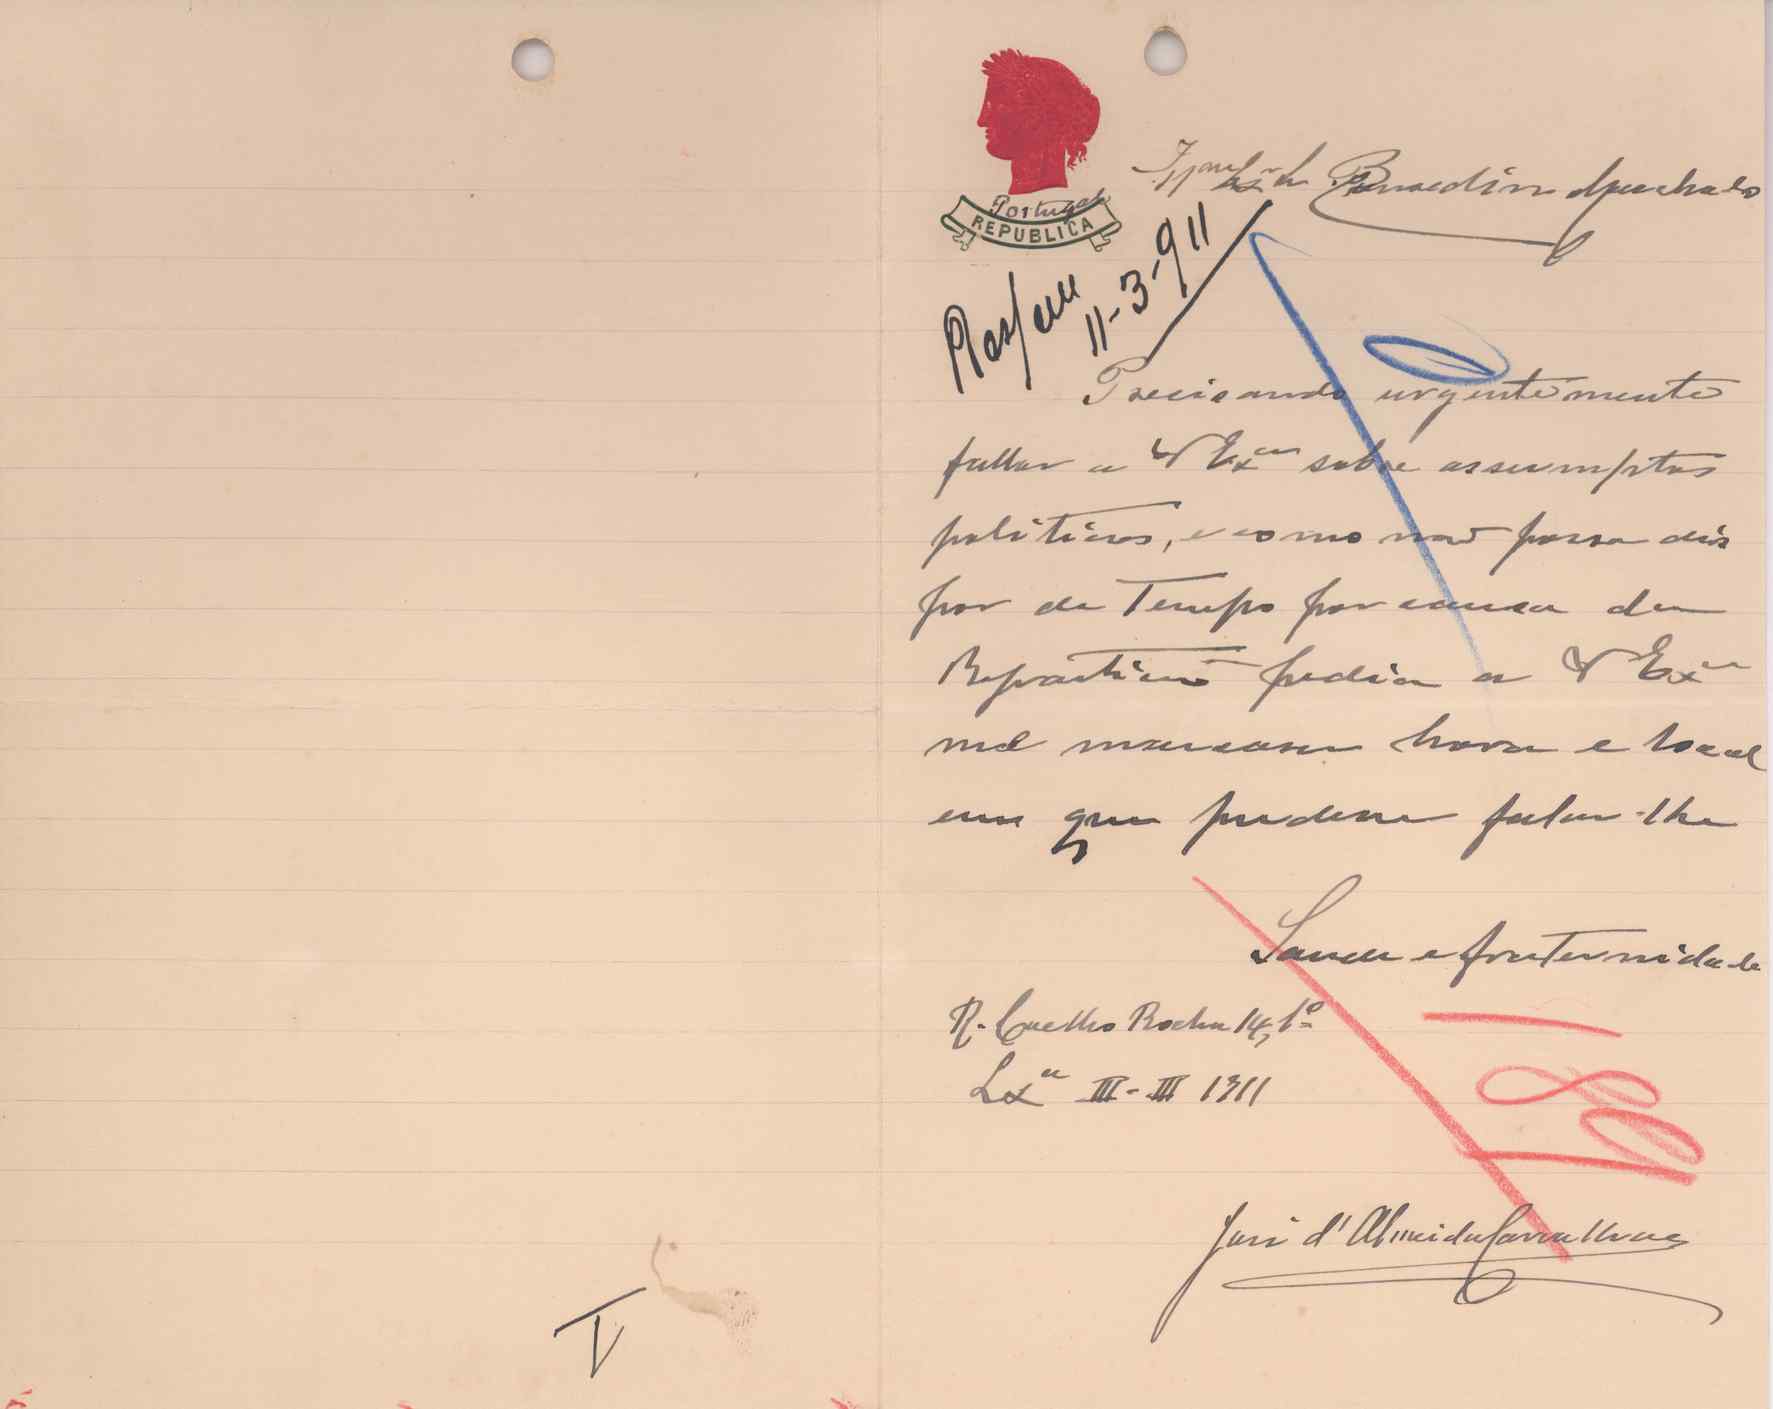 Portugal
REPUBLICA
Illmo Exmo Sr Bernardino Machado
11-3-911
Precisando urgentemente
fallar a V Exca sobre assumptos
politicos, e como não possa dis
por de tempo por causa da
Repartição pedia a V Exca
me marcasse hora e local
em que pudesse falar-lhe
Saude e fraternidade
R. Coelho Rocha 14, 1º
Lxa III-III 1911
189
José d'Almeida Carvalhaes